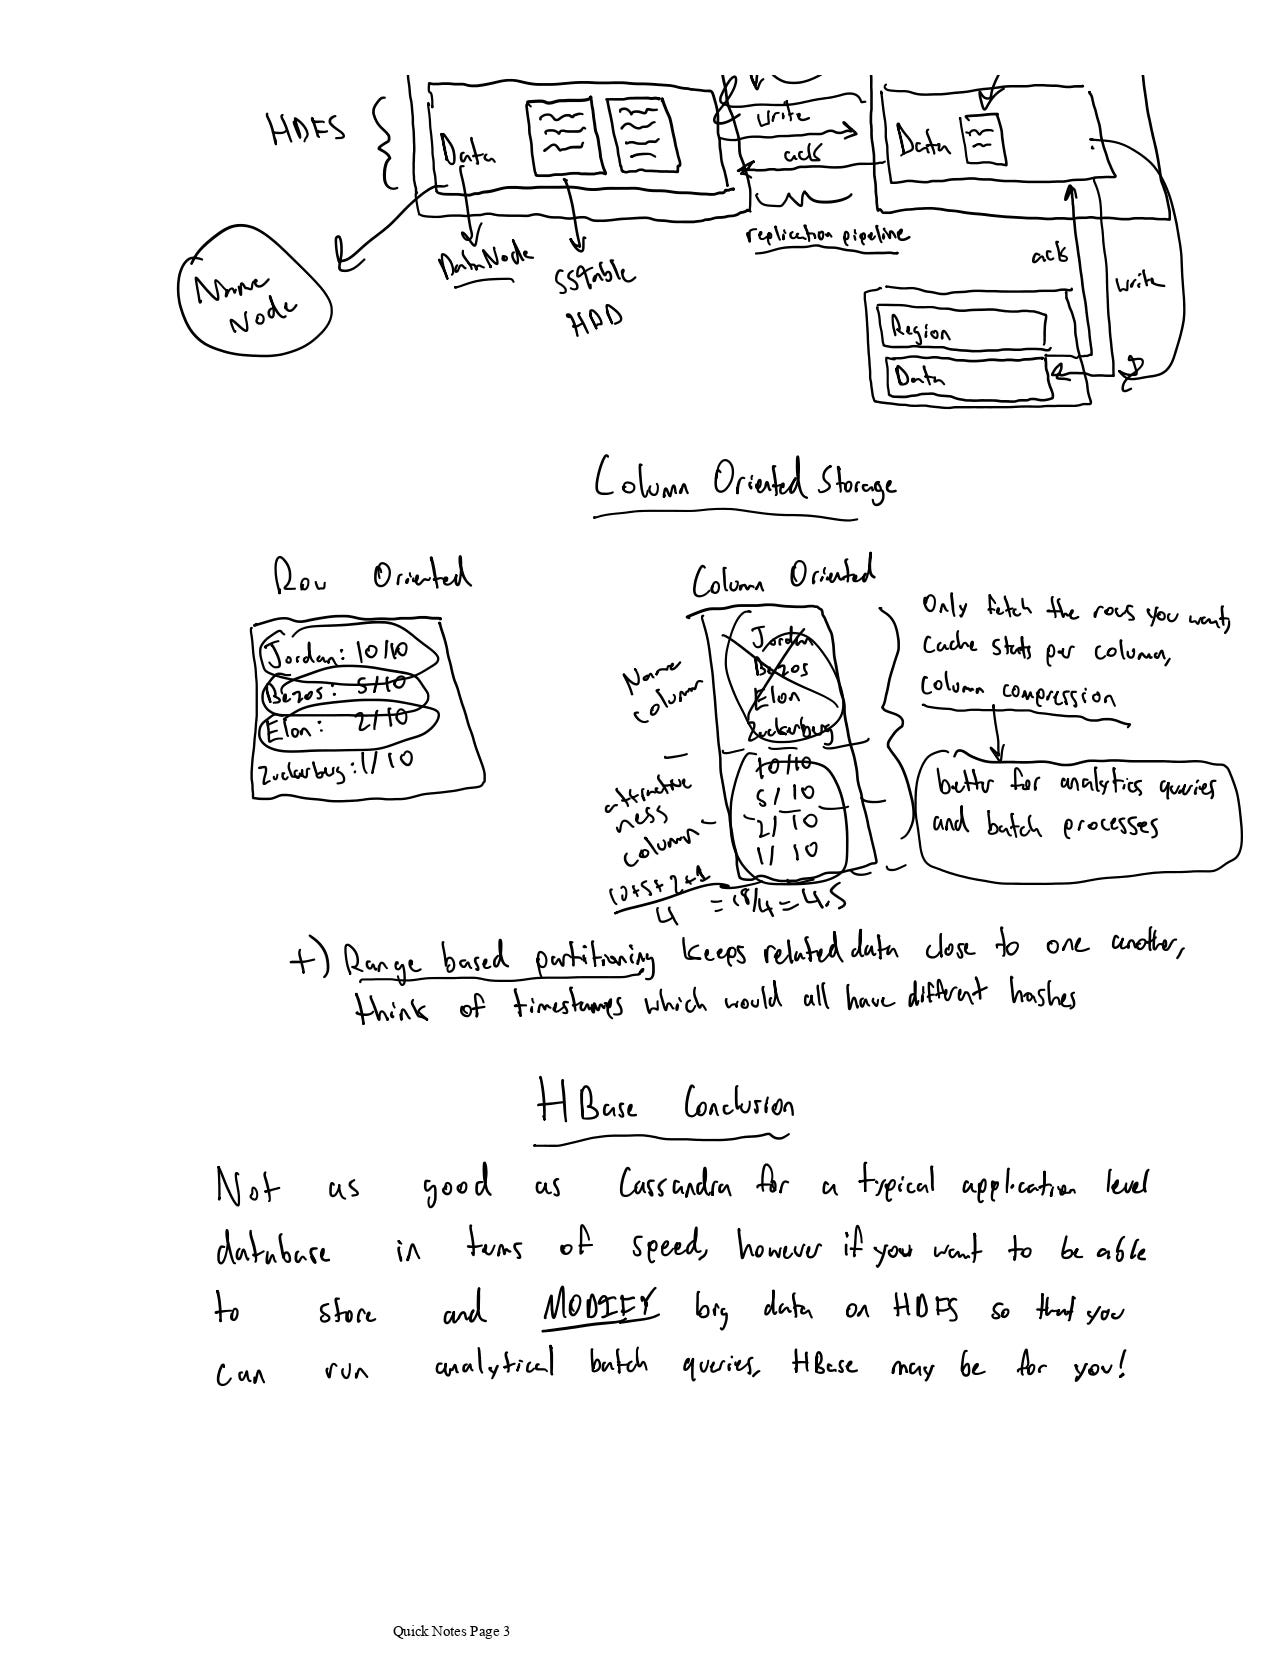 HDFS
Data
write
ack
Data
replication pipeline
Name
Node
DataNode
SSTable
HDD
ack
write
Region
Data
Column Oriented Storage
Row Oriented
Jordan: 10/10
Bezos: 5/10
Elon: 2/10
Zuckerberg: 1/10
Column Oriented
Name
column
Jordan
Bezos
Elon
Zuckerberg
attractive
ness
column
10/10
5/10
2/10
1/10
10+5+2+1
4
=18/4=4.5
Only fetch the rows you want,
Cache stats per column,
Column compression
better for analytics queries
and batch processes
+) Range based partitioning keeps related data close to one another,
think of timestamps which would all have different hashes
HBase Conclusion
Not as good as Cassandra for a typical application level
database in terms of speed, however if you want to be able
to store and MODIFY big data on HDFS so that you
can run analytical batch queries, HBase may be for you!
Quick Notes Page 3